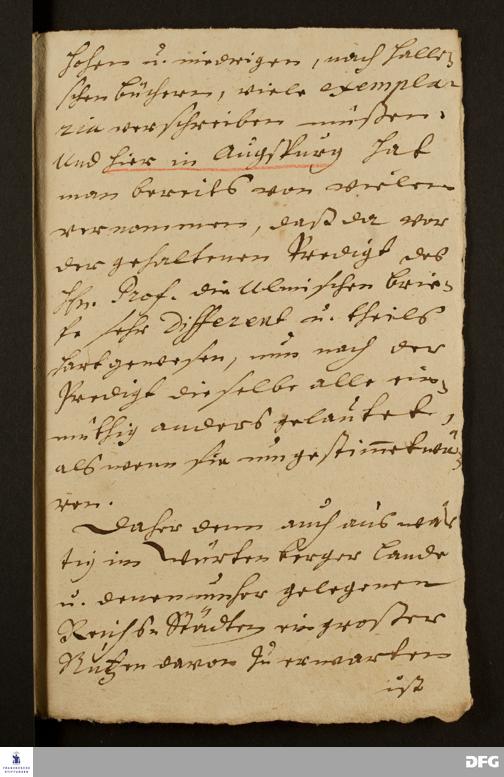 hohen u. niedrigen, nach Halli-
schen büchern, viele exempla-
ria verschreiben müßen.
Und hier in Augspurg hat
man bereits von vielen
vernommen, daß da vor
der gehaltenen Predigt des
Hn. Prof. die Ulmischen brie-
fe sehr different u. theils
hart gewesen, nun nach der
Predigt dieselbe alle ein-
müthig anders gelautet,
als wenn sie umgestim̄et wä-
ren.
Daher denn auch auswär-
tig im Würtenberger Lande
u. denen näher gelegenen
Reichs-Städten ein großer
Nutzen davon zu erwarten
ist
FRANCKESCHE
STIFTUNGEN
DFG